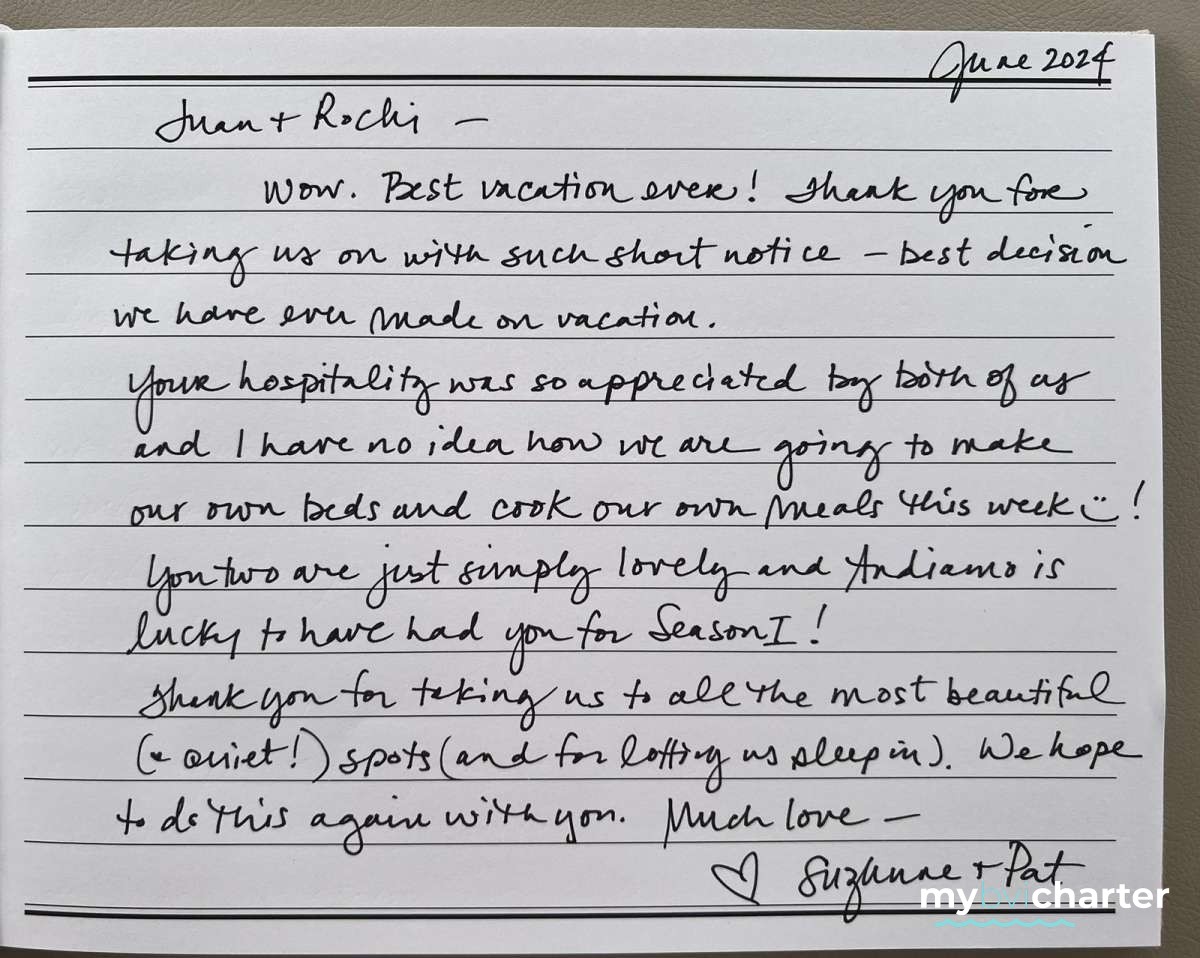 June 2024
Juan + Rochi —
Wow. Best vacation ever! Thank you for
taking us on with such short notice – best decision
we have ever made on vacation.
Your hospitality was so appreciated by both of us
and I have no idea how we are going to make
our own beds and cook our own meals this week :)!
You two are just simply lovely and Andiamo is
lucky to have had you for Season I!
Thank you for taking us to all the most beautiful
(+ quiet!) spots (and for letting us sleep in). We hope
to do this again with you. Much love –
♡ Suzanne + Pat
mybvicharter